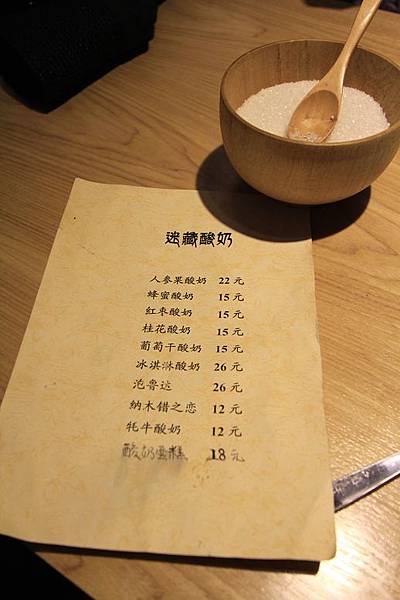 迷藏酸奶
人参果酸奶 22 元
蜂蜜酸奶 15 元
红枣酸奶 15 元
桂花酸奶 15 元
葡萄干酸奶 15 元
冰淇淋酸奶 26 元
沧鲁达 26 元
纳木错之恋 12 元
牦牛酸奶 12 元
酸奶蛋糕 18 元